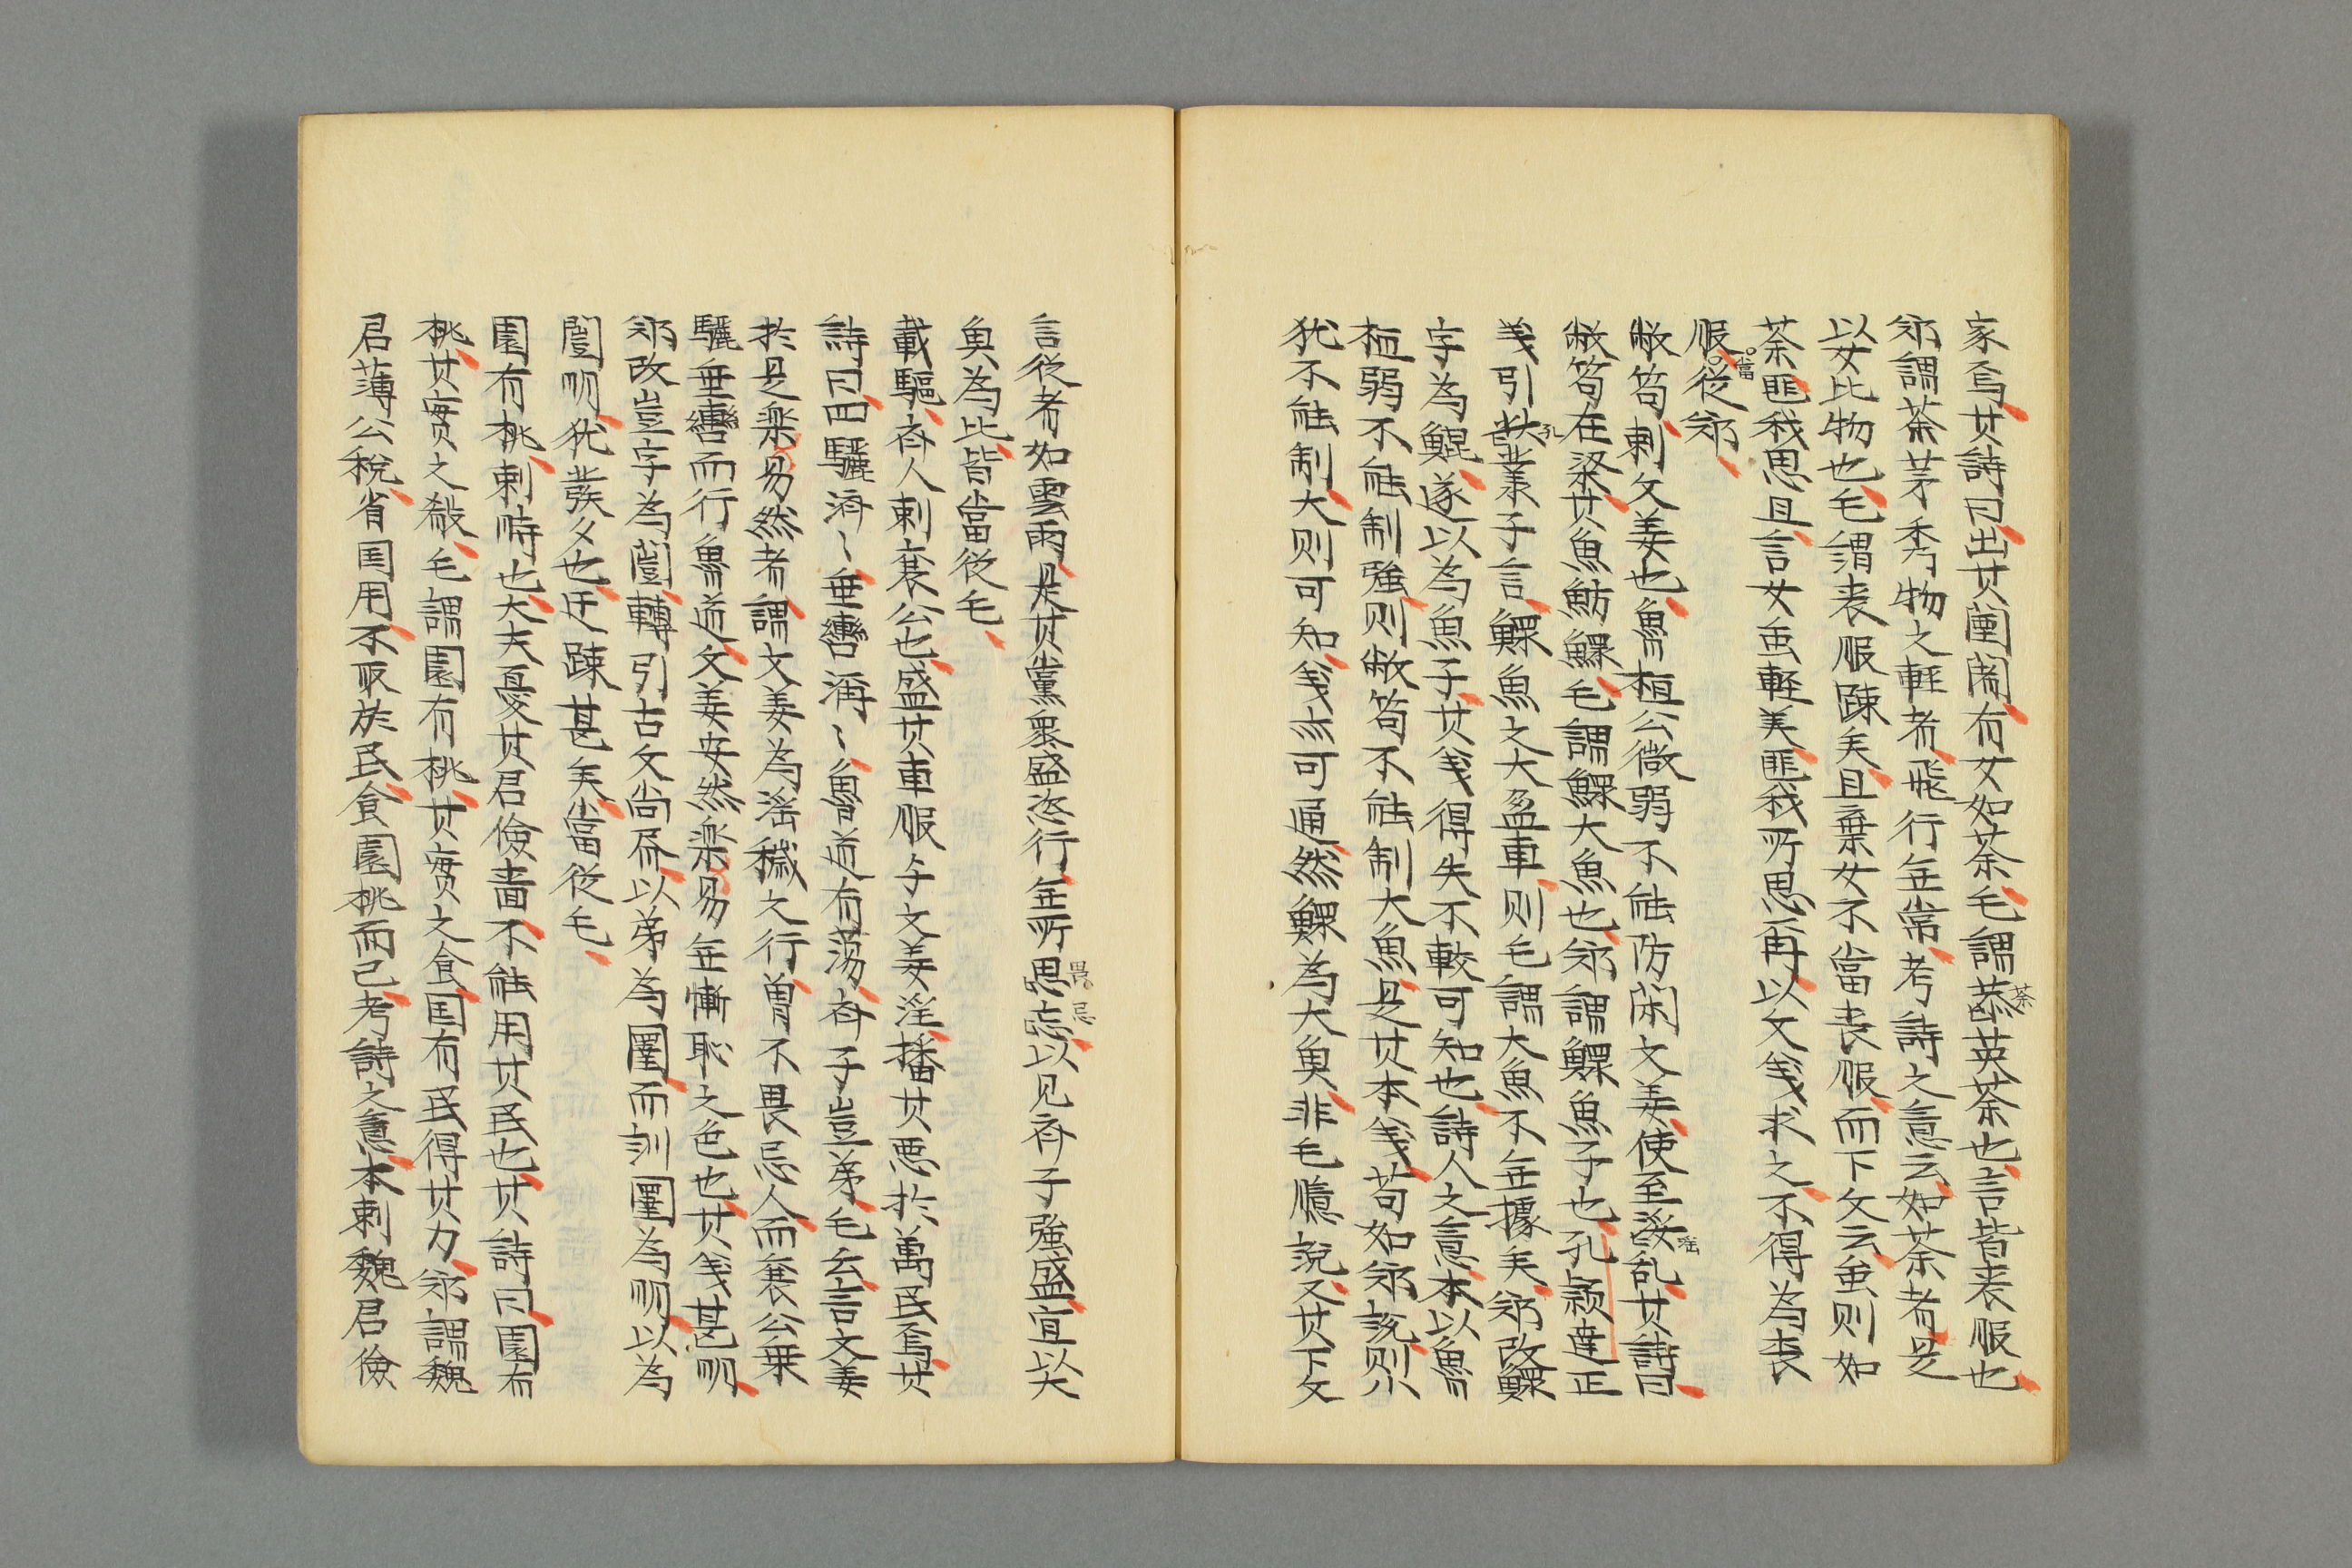 家焉其詩曰出其闉闍有女如荼毛謂荼英荼也言皆丧服也
郊謂荼茅秀物之軽者飛行無常考詩之意云如荼者是
以女比物也毛謂丧服踈矣且棄女不當丧服而下文云虽則如
荼匪我思且言女虽軽美匪我所思再以文義求之不得為丧
服當従郊
敝笱刺文姜也魯桓公微弱不能防閑文姜使至淫乱其詩曰
敝笱在梁其魚魴鰥毛謂鰥大魚也郊謂鰥魚子也孔颕達正
義引孔叢子言鰥魚之大盈車則毛謂大魚不無據矣郊改鰥
字為鯤遂以為魚子其義得失不較可知也詩人之意本以魯
桓弱不能制強則敝笱不能制大魚是其本義苟如郊說則小
犹不能制大則可知義亦可通然鰥為大魚非毛臆説又其下文
言従者如雲雨是其黨衆盛恣行無所畏忌以见斉子強盛宜以大
魚為比皆當従毛
載驅斉人刺襄公也盛其車服与文姜淫播其悪扵萬民焉其
詩曰四驪済〻垂轡濔〻魯道有蕩斉子豈弟毛云言文姜
扵是楽易然者謂文姜為淫穢之行曽不畏忌人而襄公乗
驪垂轡而行魯道文姜安然楽易無慚耻之色也其義甚明
郊改豈字為闓轉引古文尚書以弟為圛而訓圛為明以為
闓明犹發夕也迂踈甚矣當従毛
園有桃刺時也大夫憂其君儉嗇不能用其民也其詩曰園有
桃其實之殽毛謂園有桃其實之食国有民得其力郊謂魏
君薄公稅省国用不取於民食園桃而已考詩之意本刺魏君儉